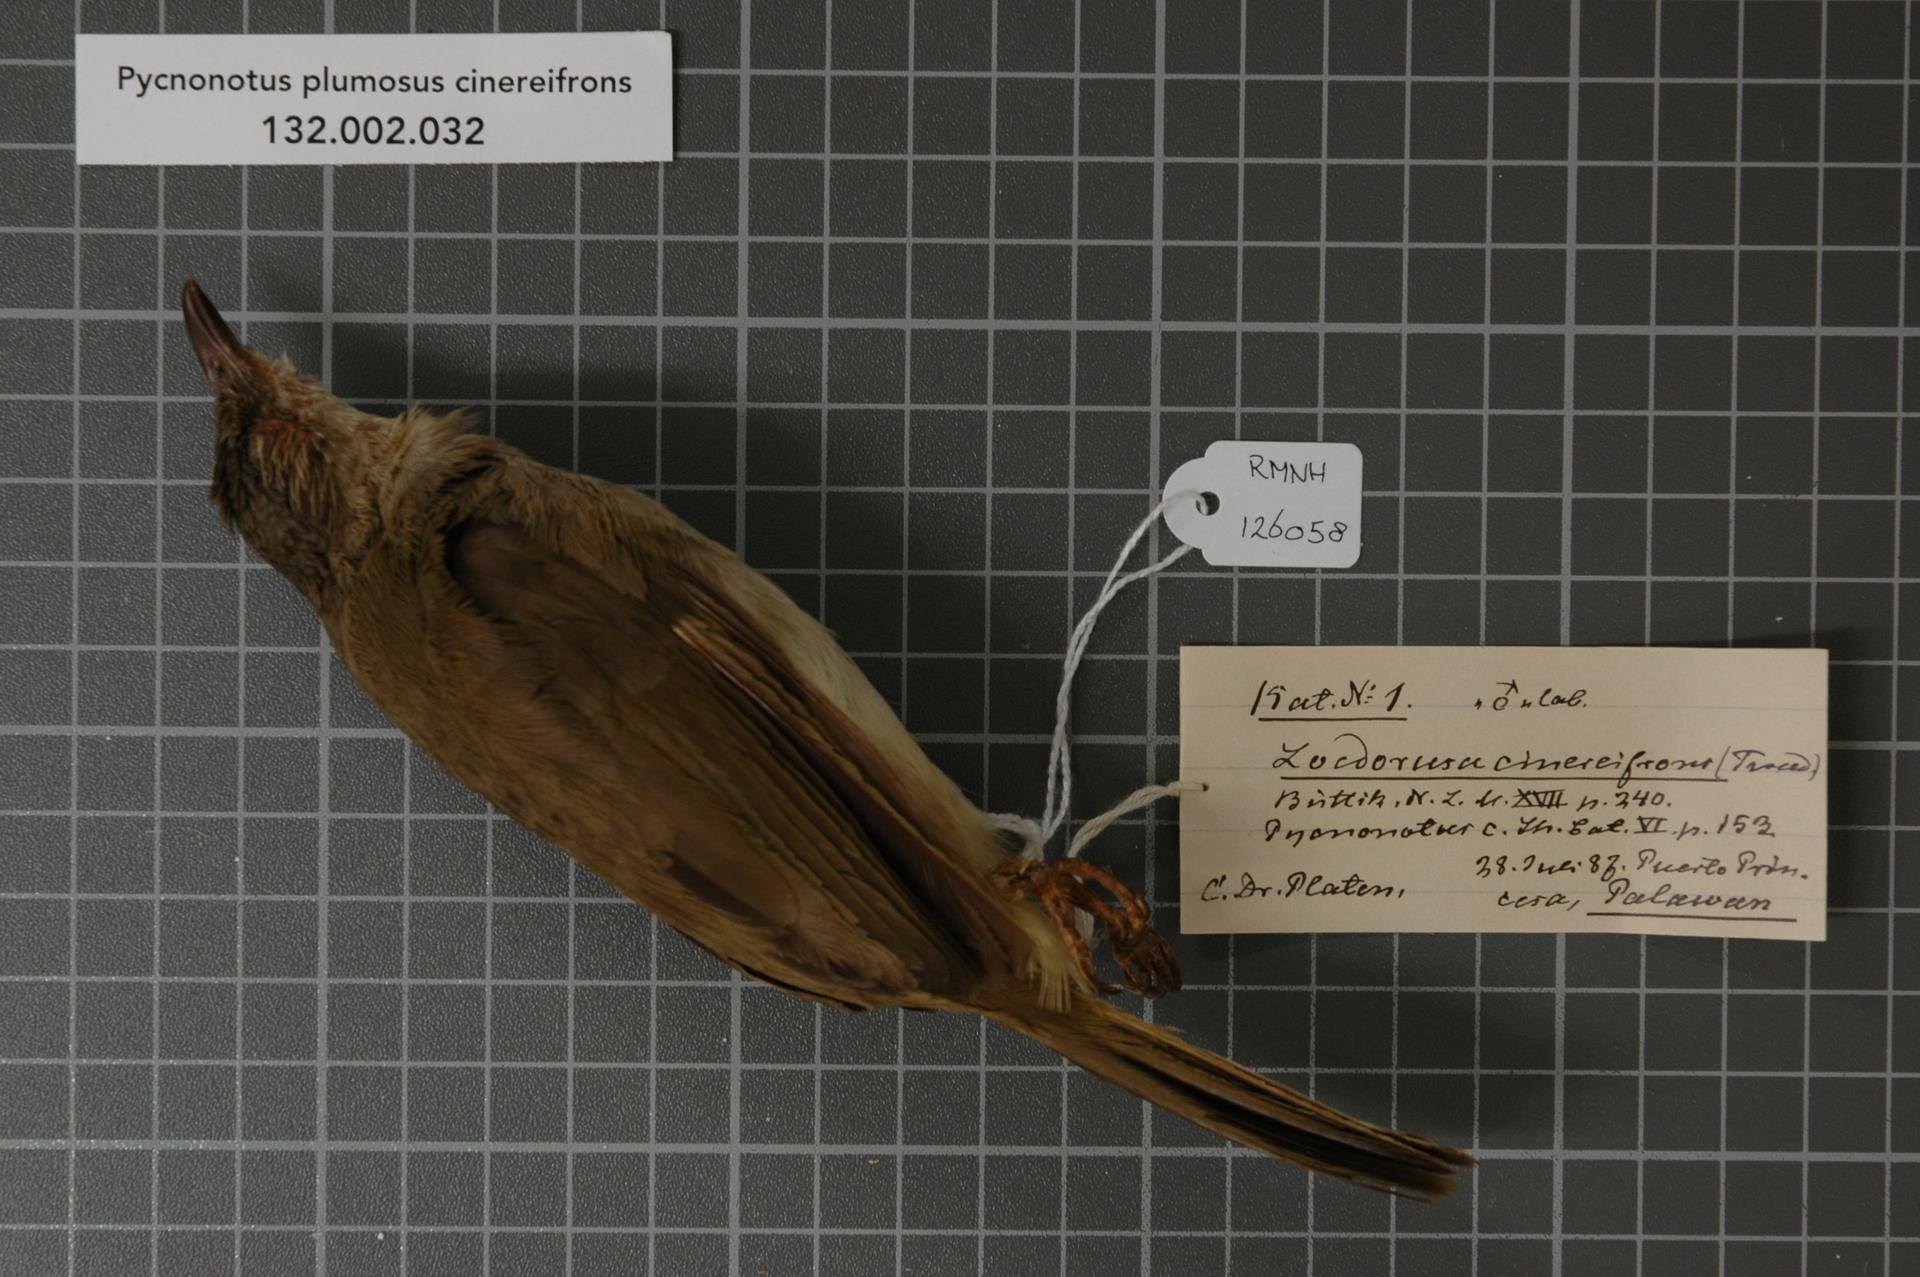 Pycnonotus plumosus cinereifrons
132.002.032
RMNH
126058
Cat. No: 1. "♂" lab.
Loedorusa cinereifrons (Tweed)
Büttik. N. L. M. XVII p. 240.
Pycnonotus c. Sh. Cat. VI. p. 153
28. Juli 87. Puerto Prin-
C. Dr. Platen, cesa, Palawan